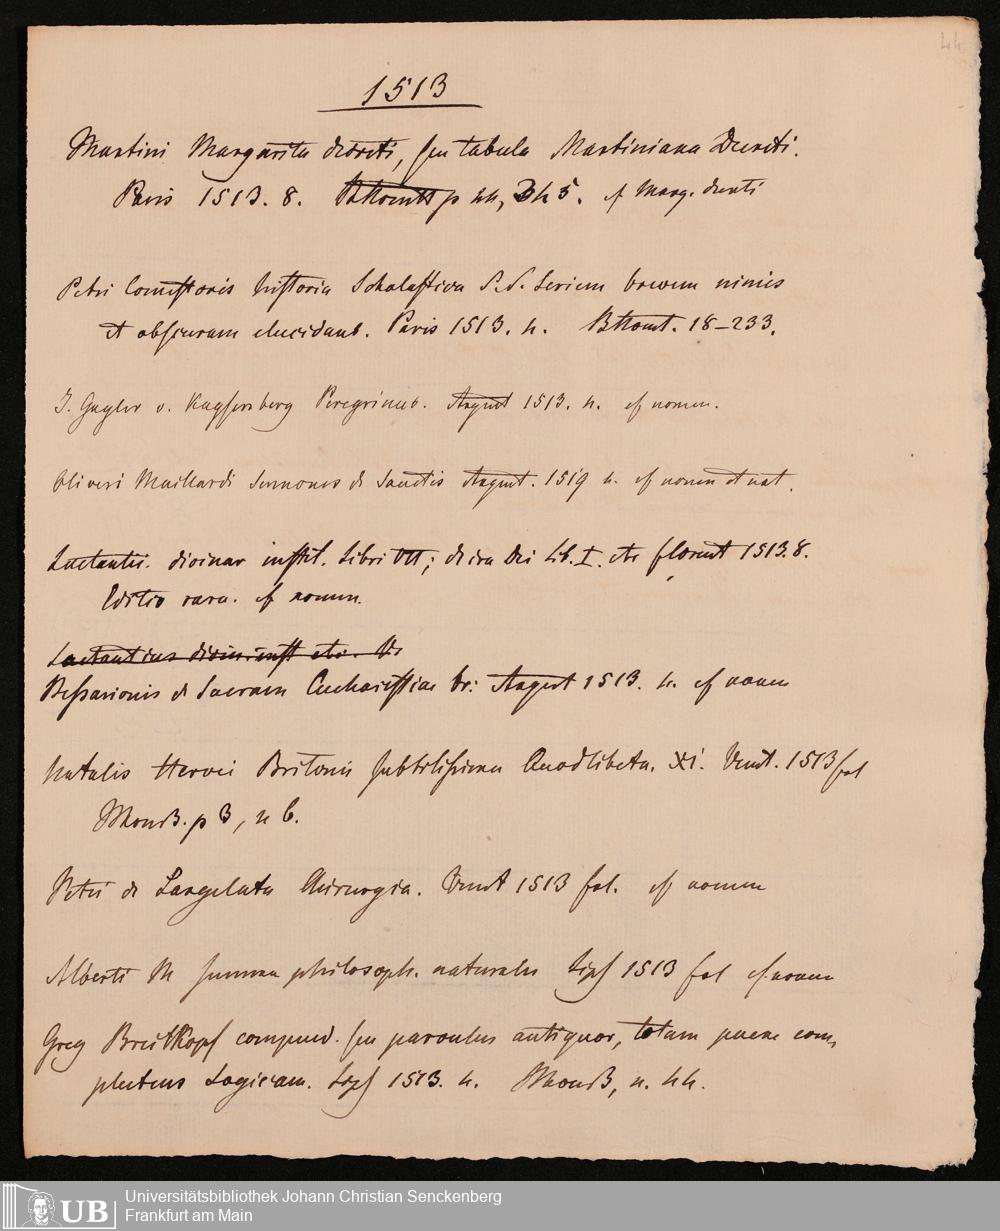 44
1513
Martini Margarita decreti, seu tabula Martiniana Decreti.
Paris 1513. 8. p 44, 345. cf Marg. decreti
Petri Comestoris historia Scholastica S. S. Seriem brevem nimis
et obscuram elucidans. Paris 1513. 4. 18-233.
J. Gayler v. Kaysersberg Peregrinus. Argent 1513. 4. cf nomen.
Oliveri Maillardi Sermones de Sanctis Argent. 1519 4. cf nomen et nat.
Lactantii. divinar instit. Libri VII; de ira Dei Lib. I. etc florent 1513. 8.
Editio rara. cf nomen.
Lactantius divin. inst etc. Ve
Bessarionis de Sacram Eucharistiae Argent 1513. 4. cf nomen
Natalis Hervei Britonis subtilissima Quodlibeta. XI. Venet. 1513 fol
p 3, n 6.
Petri de Largelata Chirurgia. Venet 1513 fol. cf nomen
Alberti M summa philosoph. naturalis Lips 1513 fol cf nomen
Greg Breitkopf compend. seu parvulus antiquor, totam paene com,
plectens Logicam. Lips 1513. 4. n. 44.
UB Universitätsbibliothek Johann Christian Senckenberg
Frankfurt am Main